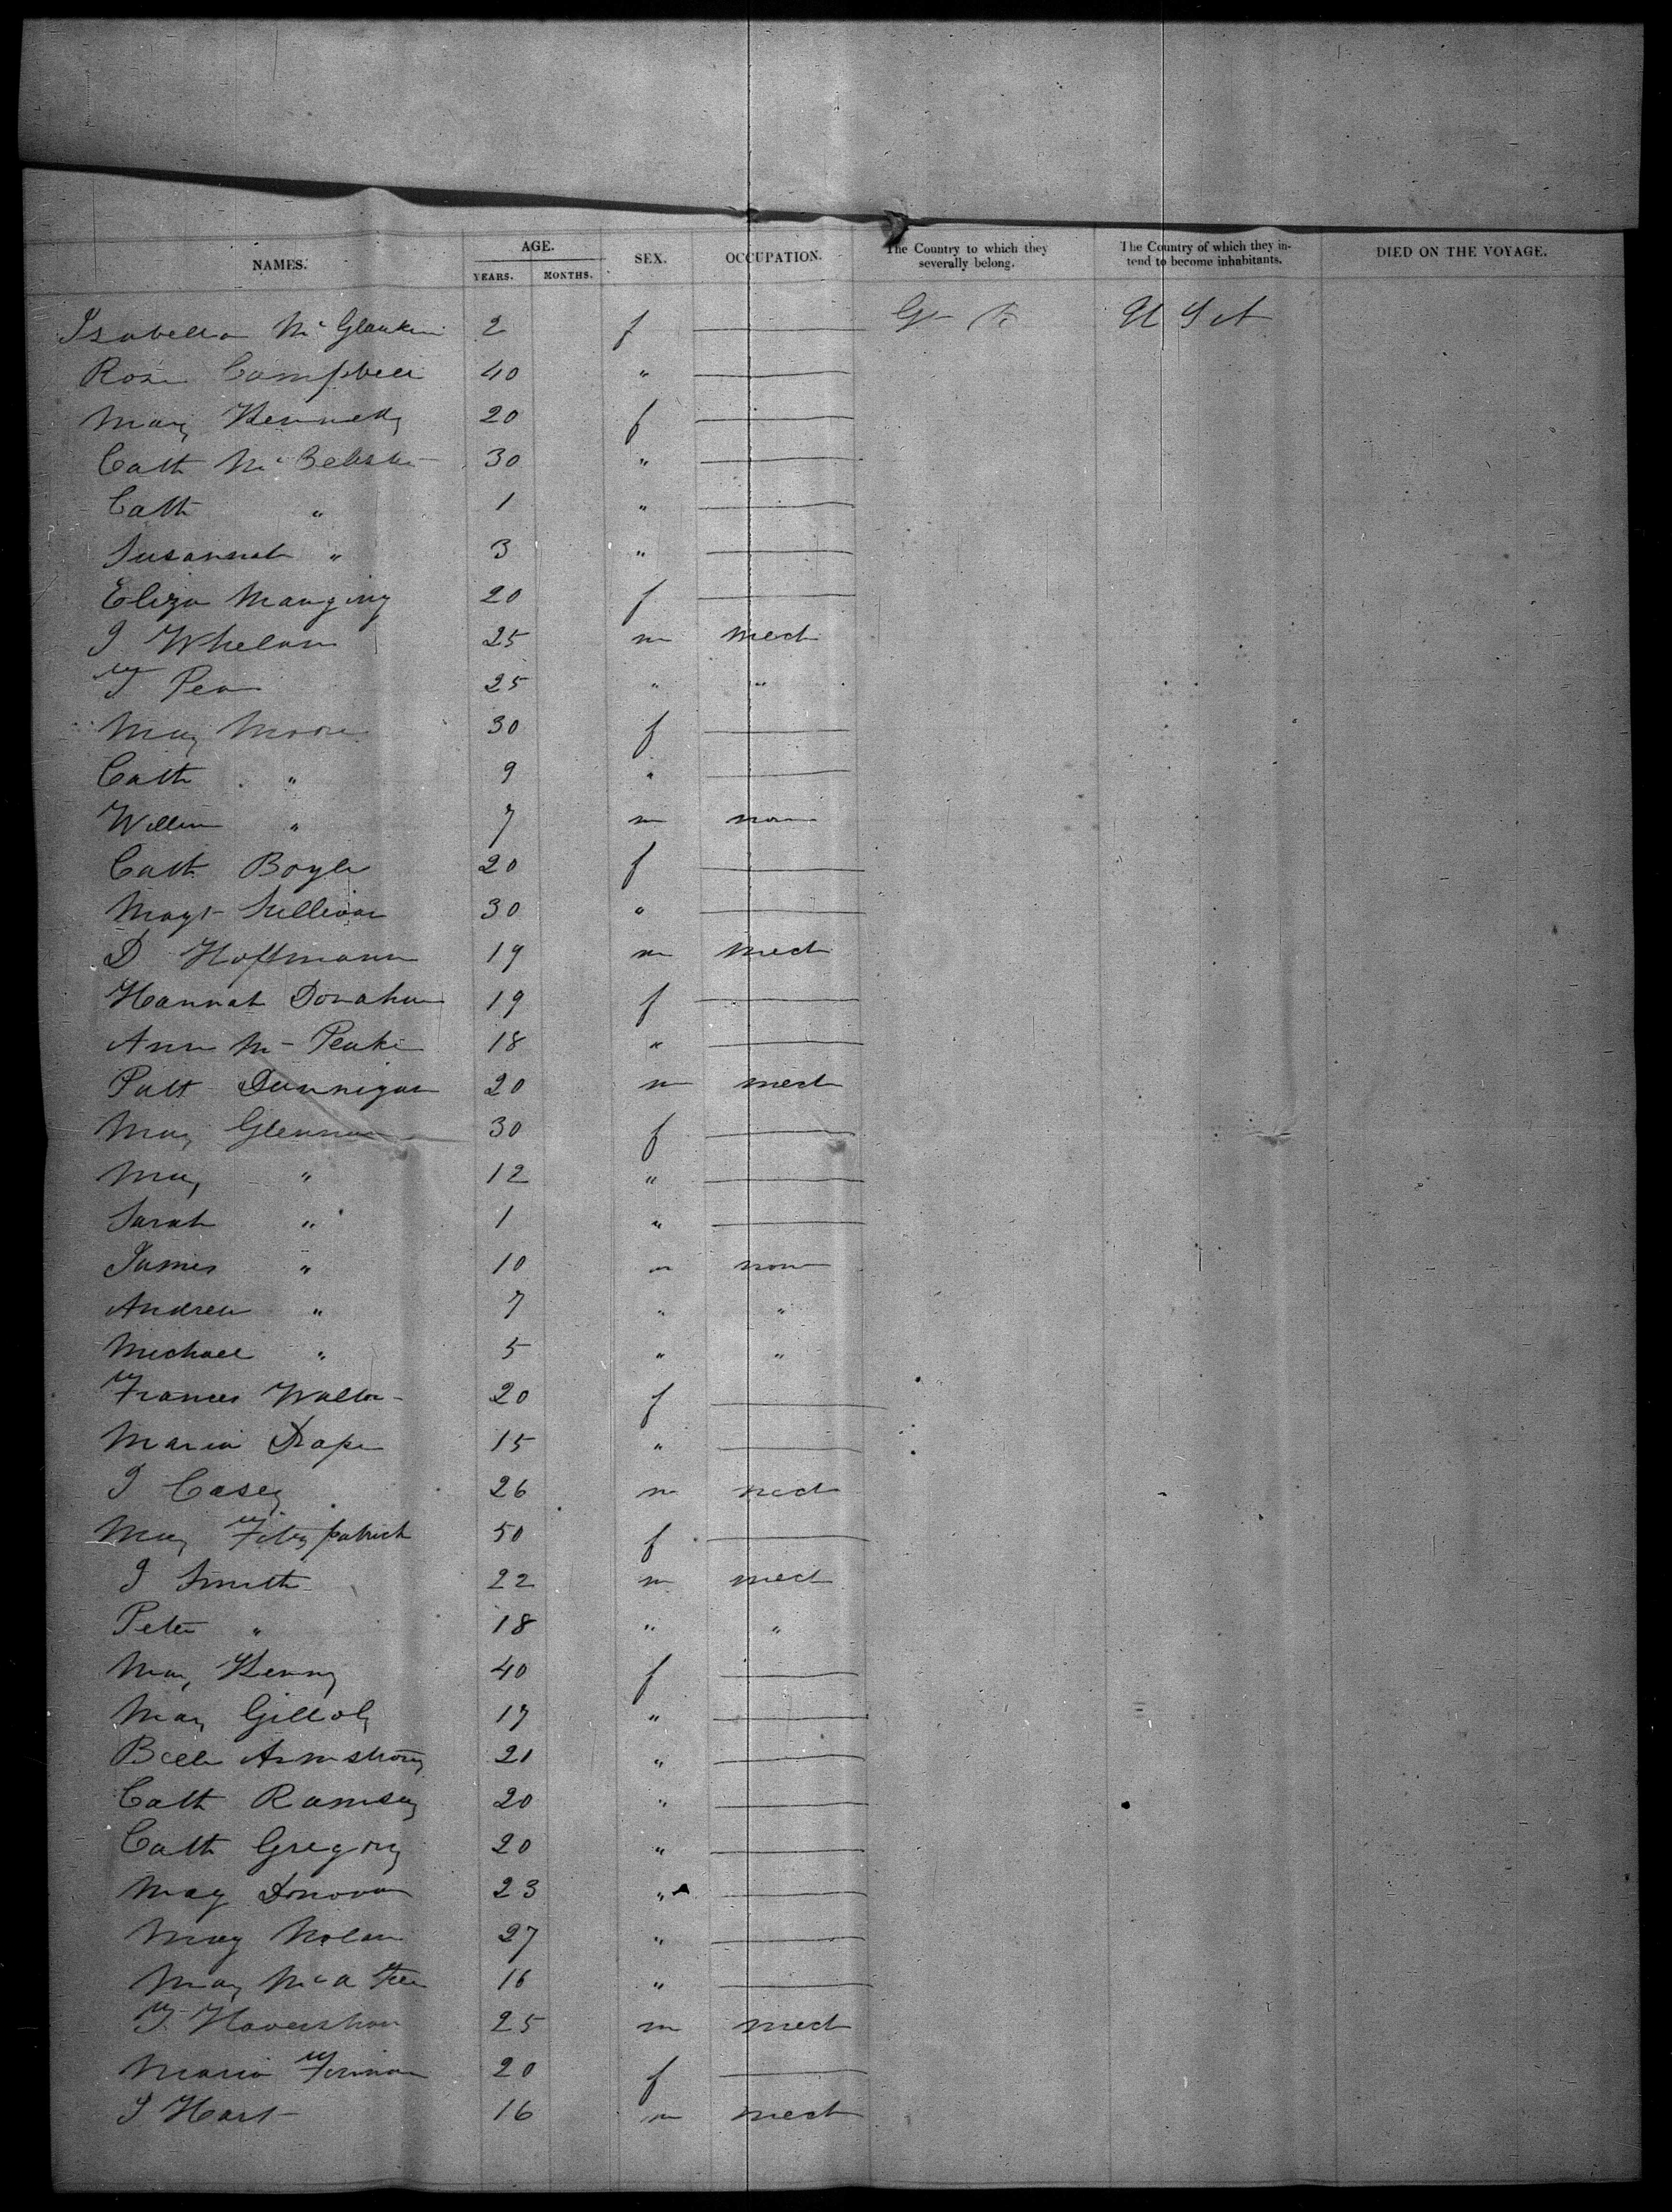 NAMES. AGE. YEARS. MONTHS. SEX. OCCUPATION. The Country to which they severally belong. The Country of which they intend to become inhabitants. DIED ON THE VOYAGE.
Isabella Mc 2 f — G B U S A
Rose Campbell 40 " —
Mary Kennedy 20 f —
Cath Mc 30 " —
Cath " 1 " —
Susannah " 3 " —
Eliza Manging 20 f —
J Whelan 25 m mech
25 " "
Mary Moore 30 f —
Cath " 9 " —
Willm " 7 m none
Cath Boyle 20 f —
Magt Sullivan 30 " —
D Hoffmann 19 m mech
Hannah Donahue 19 f —
Ann Mc Peake 18 " —
Patt Dunnigan 20 m mech
Mary Glennan 30 f —
Mary " 12 " —
Sarah " 1 " —
James " 10 m none
Andrew " 7 " "
Michael " 5 " "
Frances Walton 20 f —
Maria Draper 15 " —
J Casey 26 m mech
Mary Fitzpatrick 50 f —
J Smith 22 m mech
Peter " 18 " "
Mary Kenny 40 f —
Mary Gilloly 17 " —
Bell Armstrong 21 " —
Cath Ramsey 20 " —
Cath Gregory 20 " —
Mary Donovan 23 " —
Mary Nolan 27 " —
Mary 16 " —
25 m mech
Maria 20 f —
J Hart 16 m mech